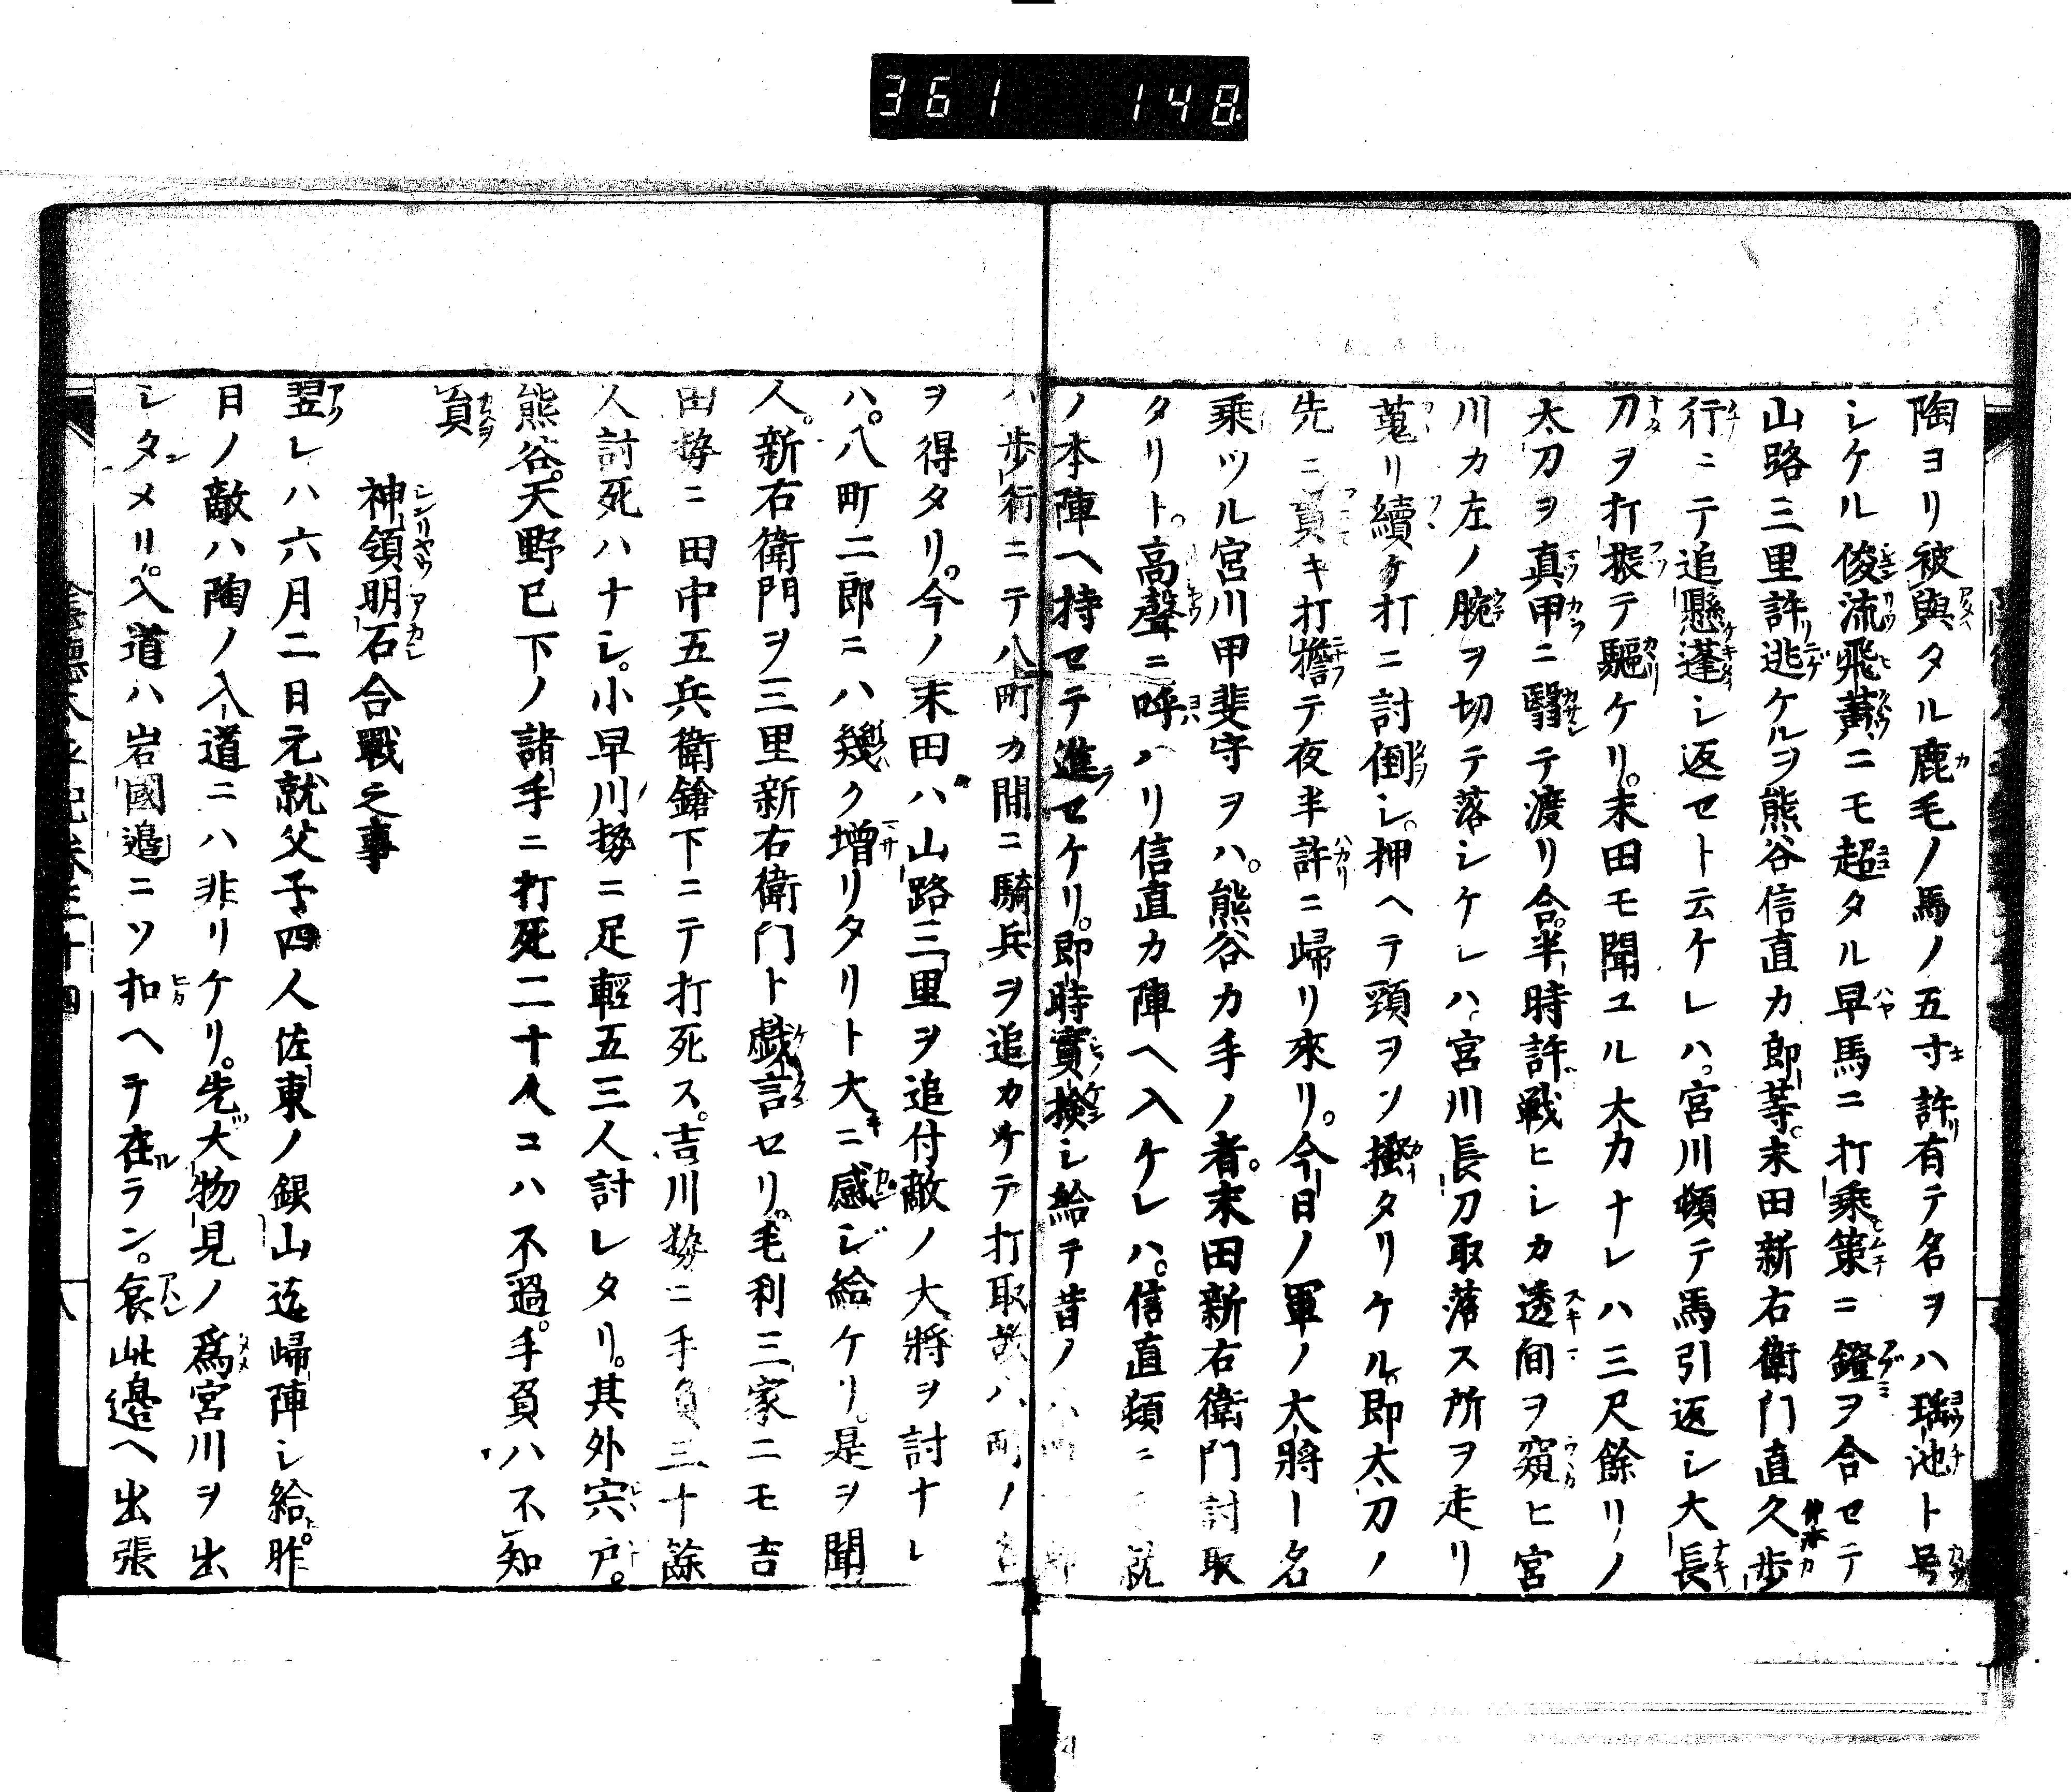 361 148
陶ヨリ被與タル鹿毛ノ馬ノ五寸許有テ名ヲハ瑠池ト号
シケル俊流飛黄ニモ超タル早馬ニ打乗策ニ鐙ヲ合セテ
山路三里許逃ケルヲ熊谷信直カ郎等末田新右衛門直久歩
行ニテ追懸蓬シ返セト云ケレハ宮川頓テ馬引返シ大長
刀ヲ打振テ驅ケリ。末田モ聞ユル大力ナレハ三尺餘リノ
太刀ヲ真甲ニ翳テ渡リ合。半時許戦ヒシカ透間ヲ窺ヒ宮
川カ左ノ腕ヲ切テ落シケレハ宮川長刀取落ス所ヲ走リ
蒐リ續ケ打ニ討倒シ。押ヘテ頸ヲソ掻タリケル即太刀ノ
先ニ貫キ打擔テ夜半許ニ歸リ來リ。今日ノ軍ノ大將ト名
乗ツル宮川甲斐守ヲハ。熊谷カ手ノ者。末田新右衛門討取
タリト。高聲ニ呼ハリ信直カ陣ヘ入ケレハ。信直頓ニ
ノ本陣ヘ持セテ進セケリ。即時實撿シ給テ昔ノ
ハ歩行ニテ八町カ間ニ騎兵ヲ追カケテ打取故八町ノ
ヲ得タリ。今ノ末田ハ山路三里ヲ追付敵ノ大將ヲ討ナレ
ハ。八町二郎ニハ幾ク增リタリト大ニ感シ給ケリ。是ヲ聞
人。新右衛門ヲ三里新右衛门ト戯言セリ。毛利三家ニモ吉
田勢ニ田中五兵衛鎗下ニテ打死ス。吉川勢ニ手負三十餘
人討死ハナシ。小早川勢ニ足輕五三人討レタリ。其外宍戸。
熊谷。天野已下ノ諸手ニ打死二十人コハ不過。手負ハ不知
員
神領明石合戰之事
翌レハ六月二日元就父子四人佐東ノ銀山迄歸陣シ給。昨
日ノ敵ハ陶ノ入道ニハ非リケリ。先大物見ノ為宮川ヲ出
シタメリ。入道ハ岩國邉ニソ扣ヘテ在ラン。哀此邊ヘ出張